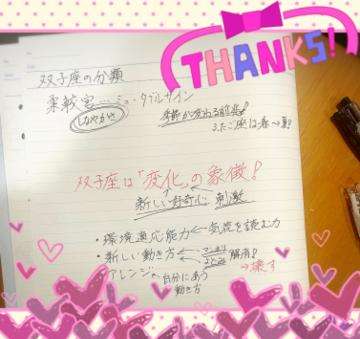 THANKS!
双子座の分類
柔軟宮……ミュータブルサイン
しなやかさ
季節が変わる前兆!
ふたご座は春→夏!
双子座は「変化」の象徴!
新しい好奇心 刺激
・環境適応能力←気流を読む力
・新しい動き方← 解消!
→壊す
・アレンジ←自分にあう
動き方